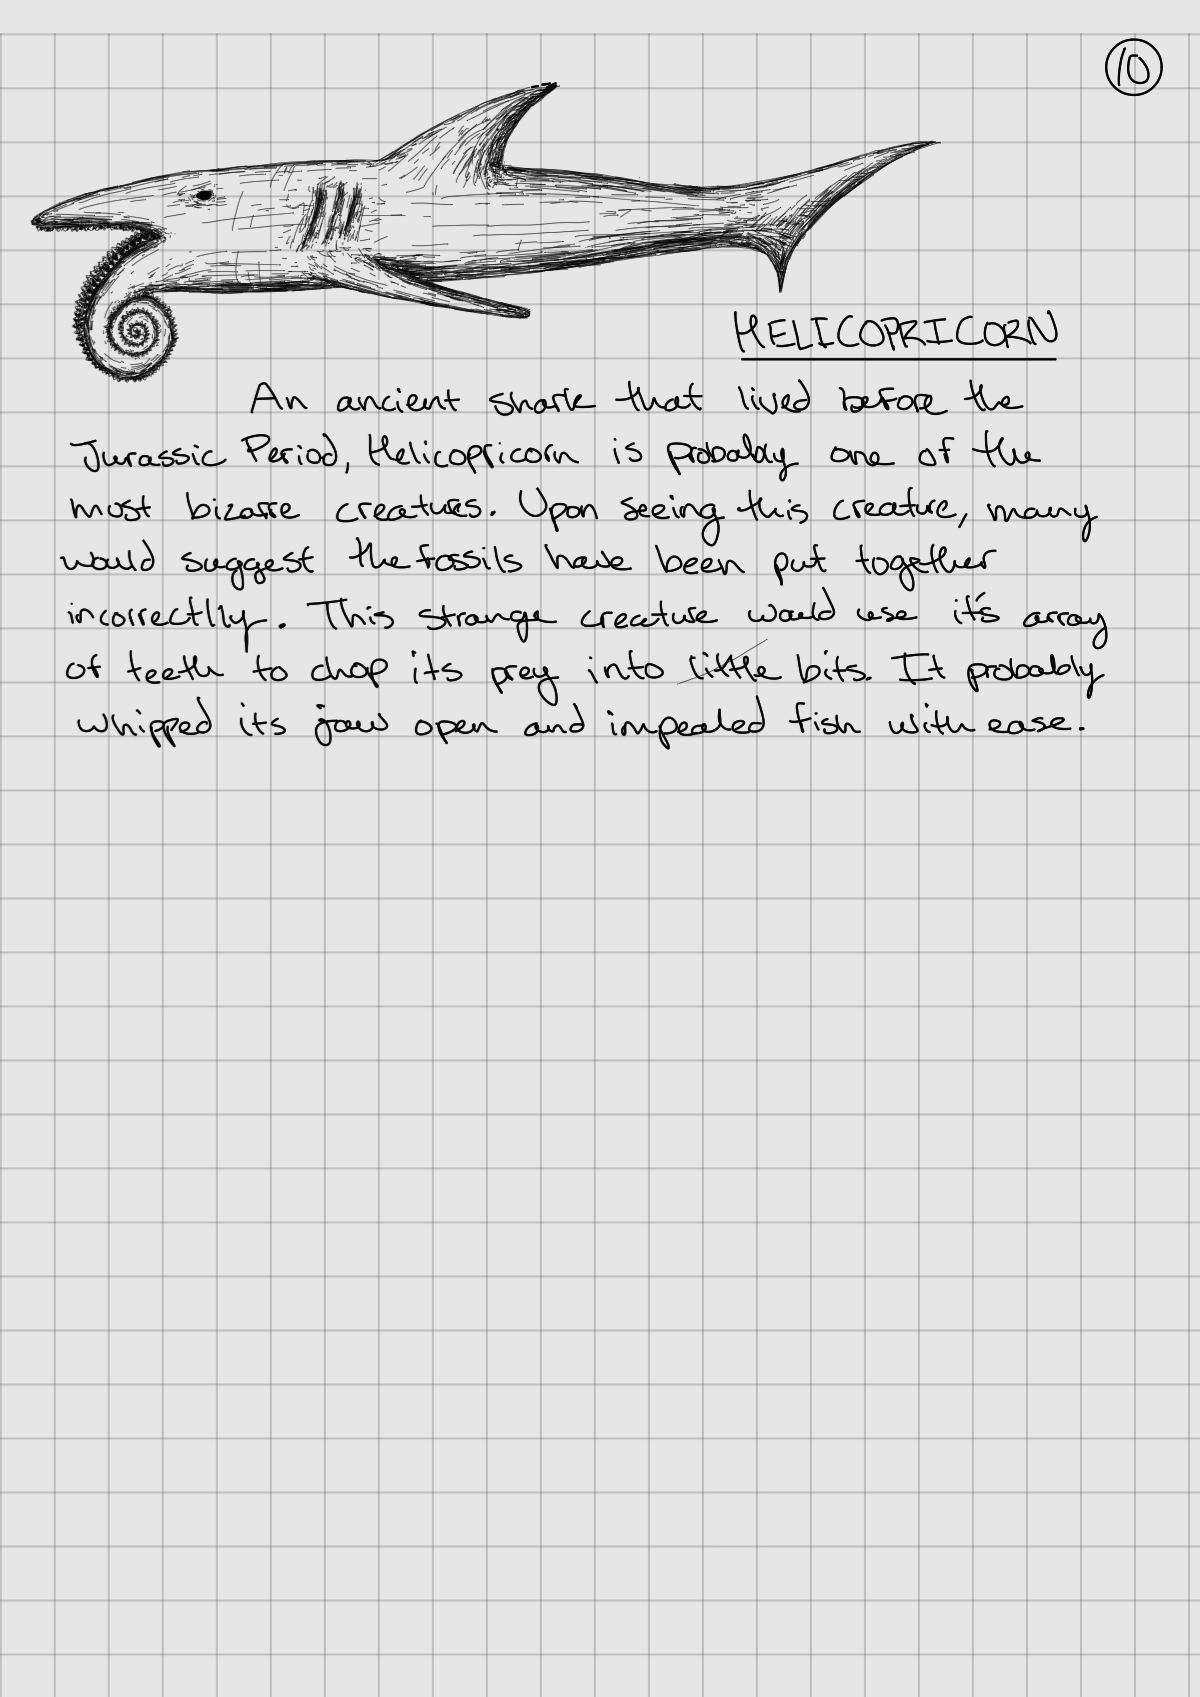 10
HELICOPRICORN
An ancient shark that lived before the
Jurassic Period, Helicopricorn is probably one of the
most bizarre creatures. Upon seeing this creature, many
would suggest the fossils have been put together
incorrectlly. This strange creature would use it's array
of teeth to chop its prey into little bits. It probably
whipped its jaw open and impealed fish with ease.